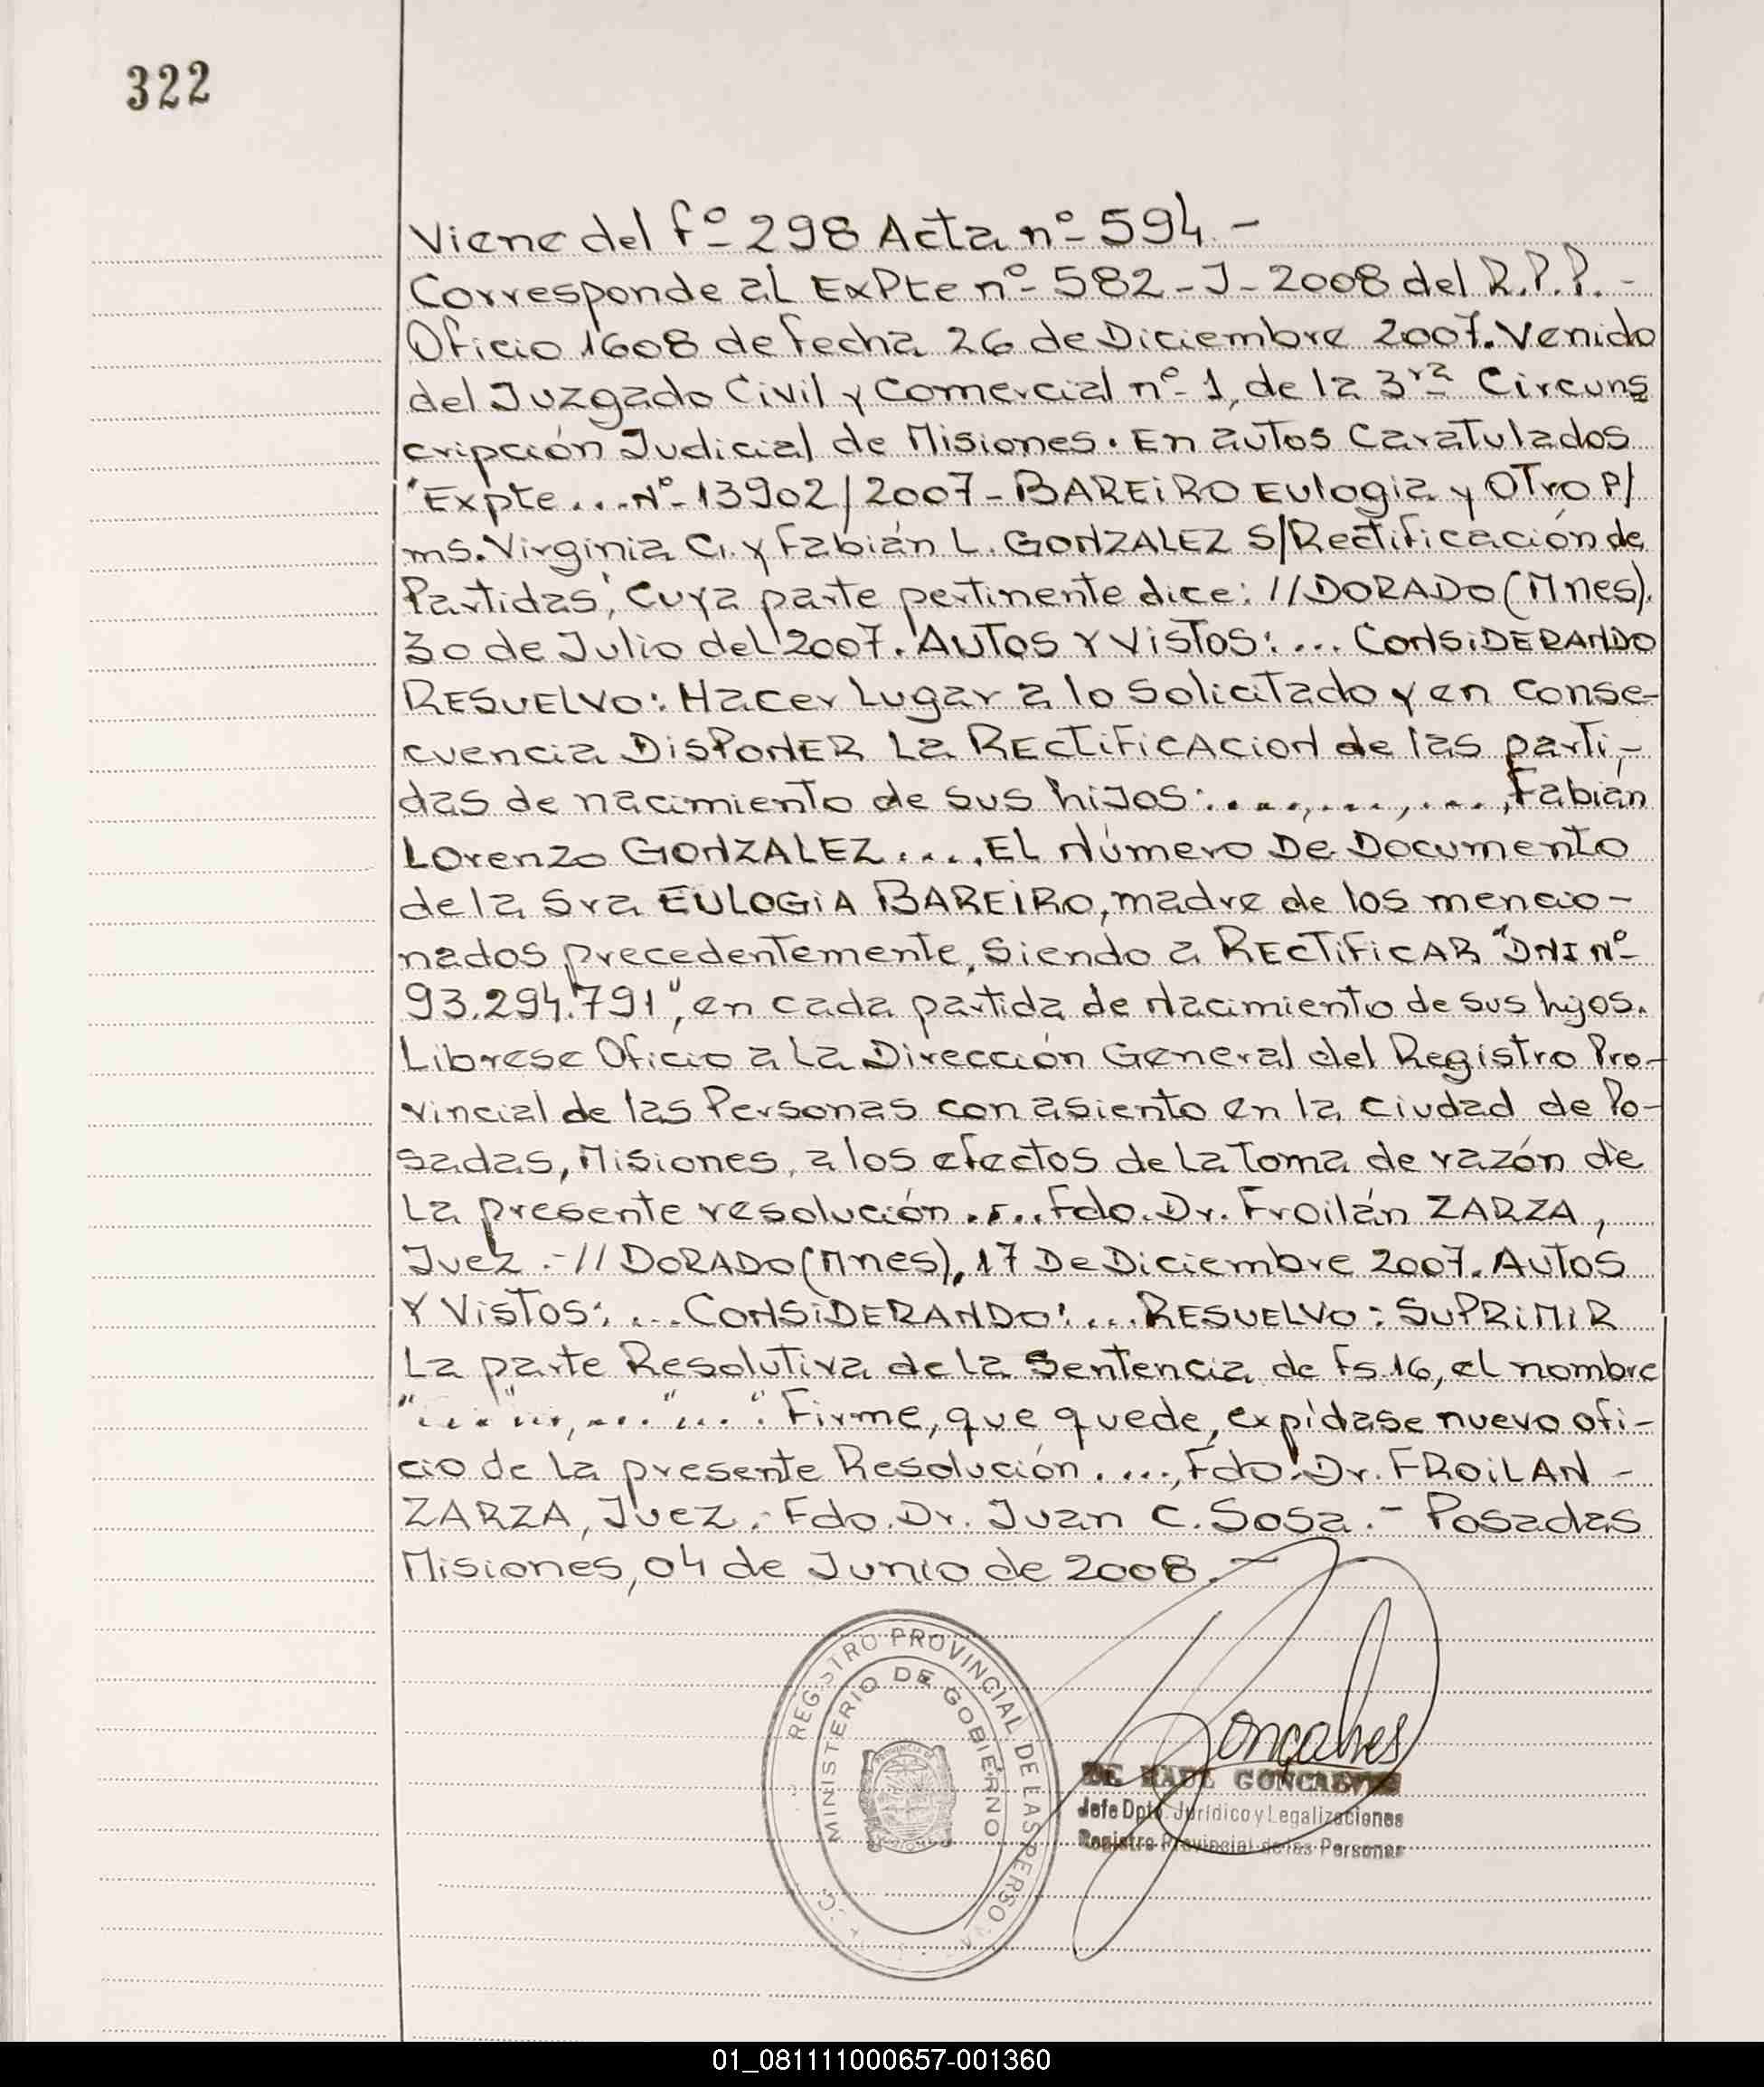 322
Viene del fº 298 Acta nº 594.-
Corresponde al ExPte nº 582-J-2008 del R.P.P.-
Oficio 1608 de fecha 26 de Diciembre 2007. Venido
del Juzgado Civil y Comercial nº 1, de la 3ra Circuns
cripción Judicial de Misiones. En autos Caratulados
"Expte...Nº 13902/2007-BAREIRO Eulogia y OTro P/
ms. Virginia C. y Fabián L. GONZALEZ S/Rectificación de
Partidas", Cuya parte pertinente dice: //DORADO (Mnes).
30 de Julio del 2007. AUTOS Y VISTOS:... CONSIDERANDO
RESUELVO: Hacer Lugar a lo solicitado y en conse-
cuencia DISPONER La RECTIFICACION de las parti-
das de nacimiento de sus hijos:...,...,...,Fabián
Lorenzo GONZALEZ...., EL Número De Documento
de la Sra EULOGIA BAREIRO, madre de los mencio-
nados precedentemente, siendo a RECTIFICAR "DNI Nº
93.294.791", en cada partida de Nacimiento de sus hijos.
Librese Oficio a la Dirección General del Registro Pro-
vincial de las Personas con asiento en la ciudad de Po-
sadas, Misiones, a los efectos de la Toma de razón de
La presente resolución.... Fdo. Dr. Froilán ZARZA,
Juez.-//DORADO (Mnes), 17 De Diciembre 2007. AUTOS
Y VISTOS:...CONSIDERANDO:...RESUELVO: SUPRIMIR
La parte Resolutiva de la Sentencia de Fs.16, el nombre
"..."...,..."...". Firme, que quede, expídase nuevo ofi-
cio de la presente Resolución...., Fdo. Dr. FROILAN-
ZARZA, Juez.- Fdo. Dr. Juan C. Sosa.- Posadas
Misiones, 04 de Junio de 2008.-
REGISTRO PROVINCIAL DE LAS PERSONAS
MINISTERIO DE GOBIERNO
Gonçalves
RAUL GONCALVES
Jefe Dpto. Jurídico y Legalizaciones
Registro Provincial de las Personas
01_081111000657-001360